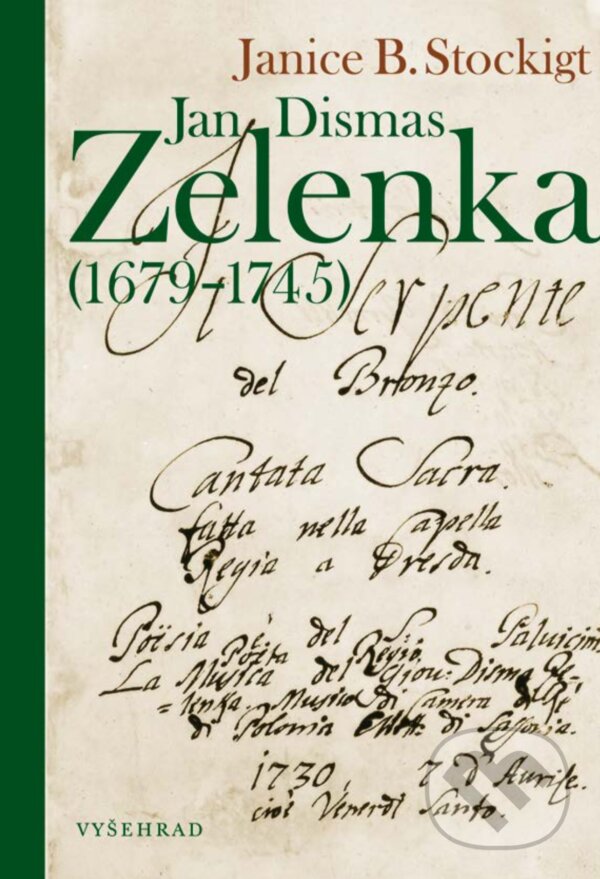 Janice B. Stockigt
Jan Dismas
Zelenka
(1679–1745)
Il Serpente
del Bronzo.
Cantata Sacra.
fatta nella Capella
Regia a Dresda.
Poësia è del S. Palvicini
Poëta Regio.
La Musica del Giov: Disma Ze-
=lenka. Musico di Camera di Re
di Polonia Elett: di Sassonia.
1730, 7 d'Aurile.
cioè Venerdi Santo.
VYŠEHRAD